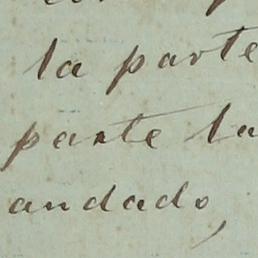 la parte
parte la
andado,